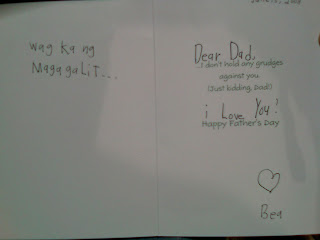 wag ka ng
MagagaLiT...
Dear Dad,
...I don't hold any grudges
against you.
(Just kidding, Dad!)
i Love You!
Happy Father's Day
Bea